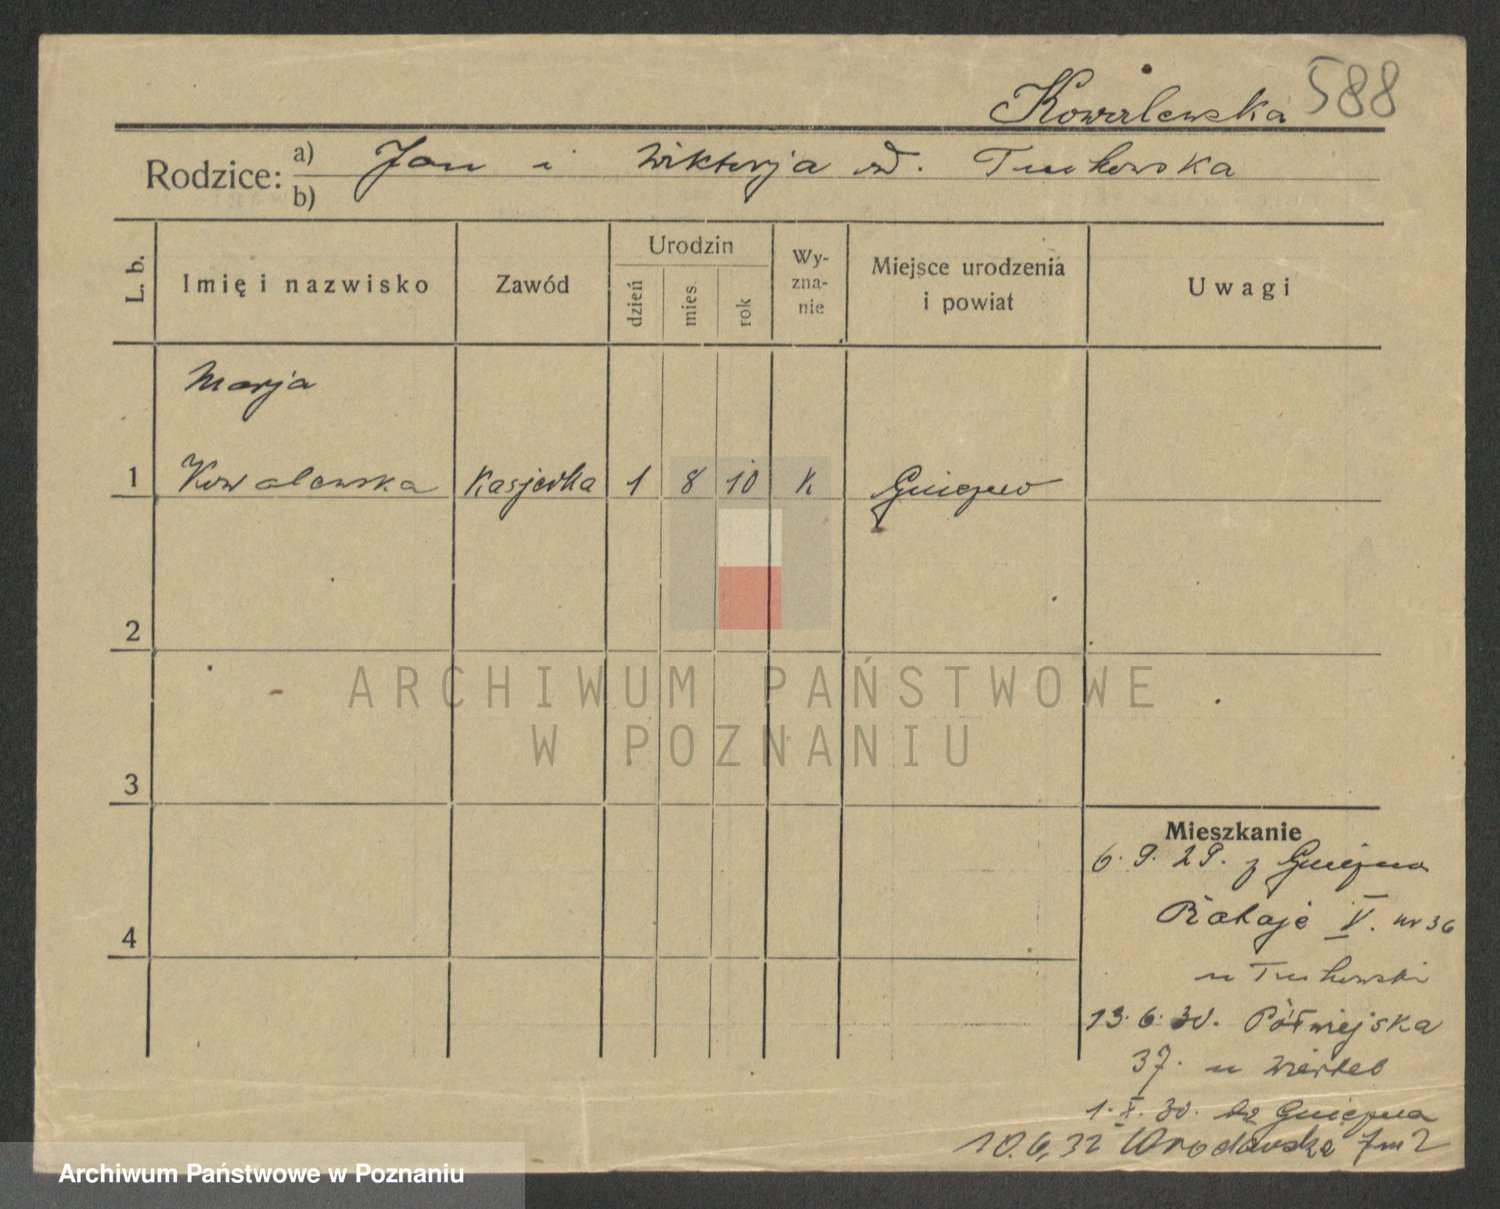 Kowalewska 588
Rodzice: a) Jan i Wiktorja Tuchowska
b)
L. b. Imię i nazwisko Zawód Urodzin dzień mies. rok Wy-zna-nie Miejsce urodzenia i powiat Uwagi
Marja
1 Kowalewska Kasjerka 1 8 10 K Gniezno
2
3
4
ARCHIWUM PAŃSTWOWE
W POZNANIU
Mieszkanie
6. 9. 29. z Gniezna
Rataje V. nr 36
u Tuchowski
13. 6. 30. Półwiejska
37. u
1. X. 30. do Gniezna
10.6.32 Wrocławska 7 m 2
Archiwum Państwowe w Poznaniu